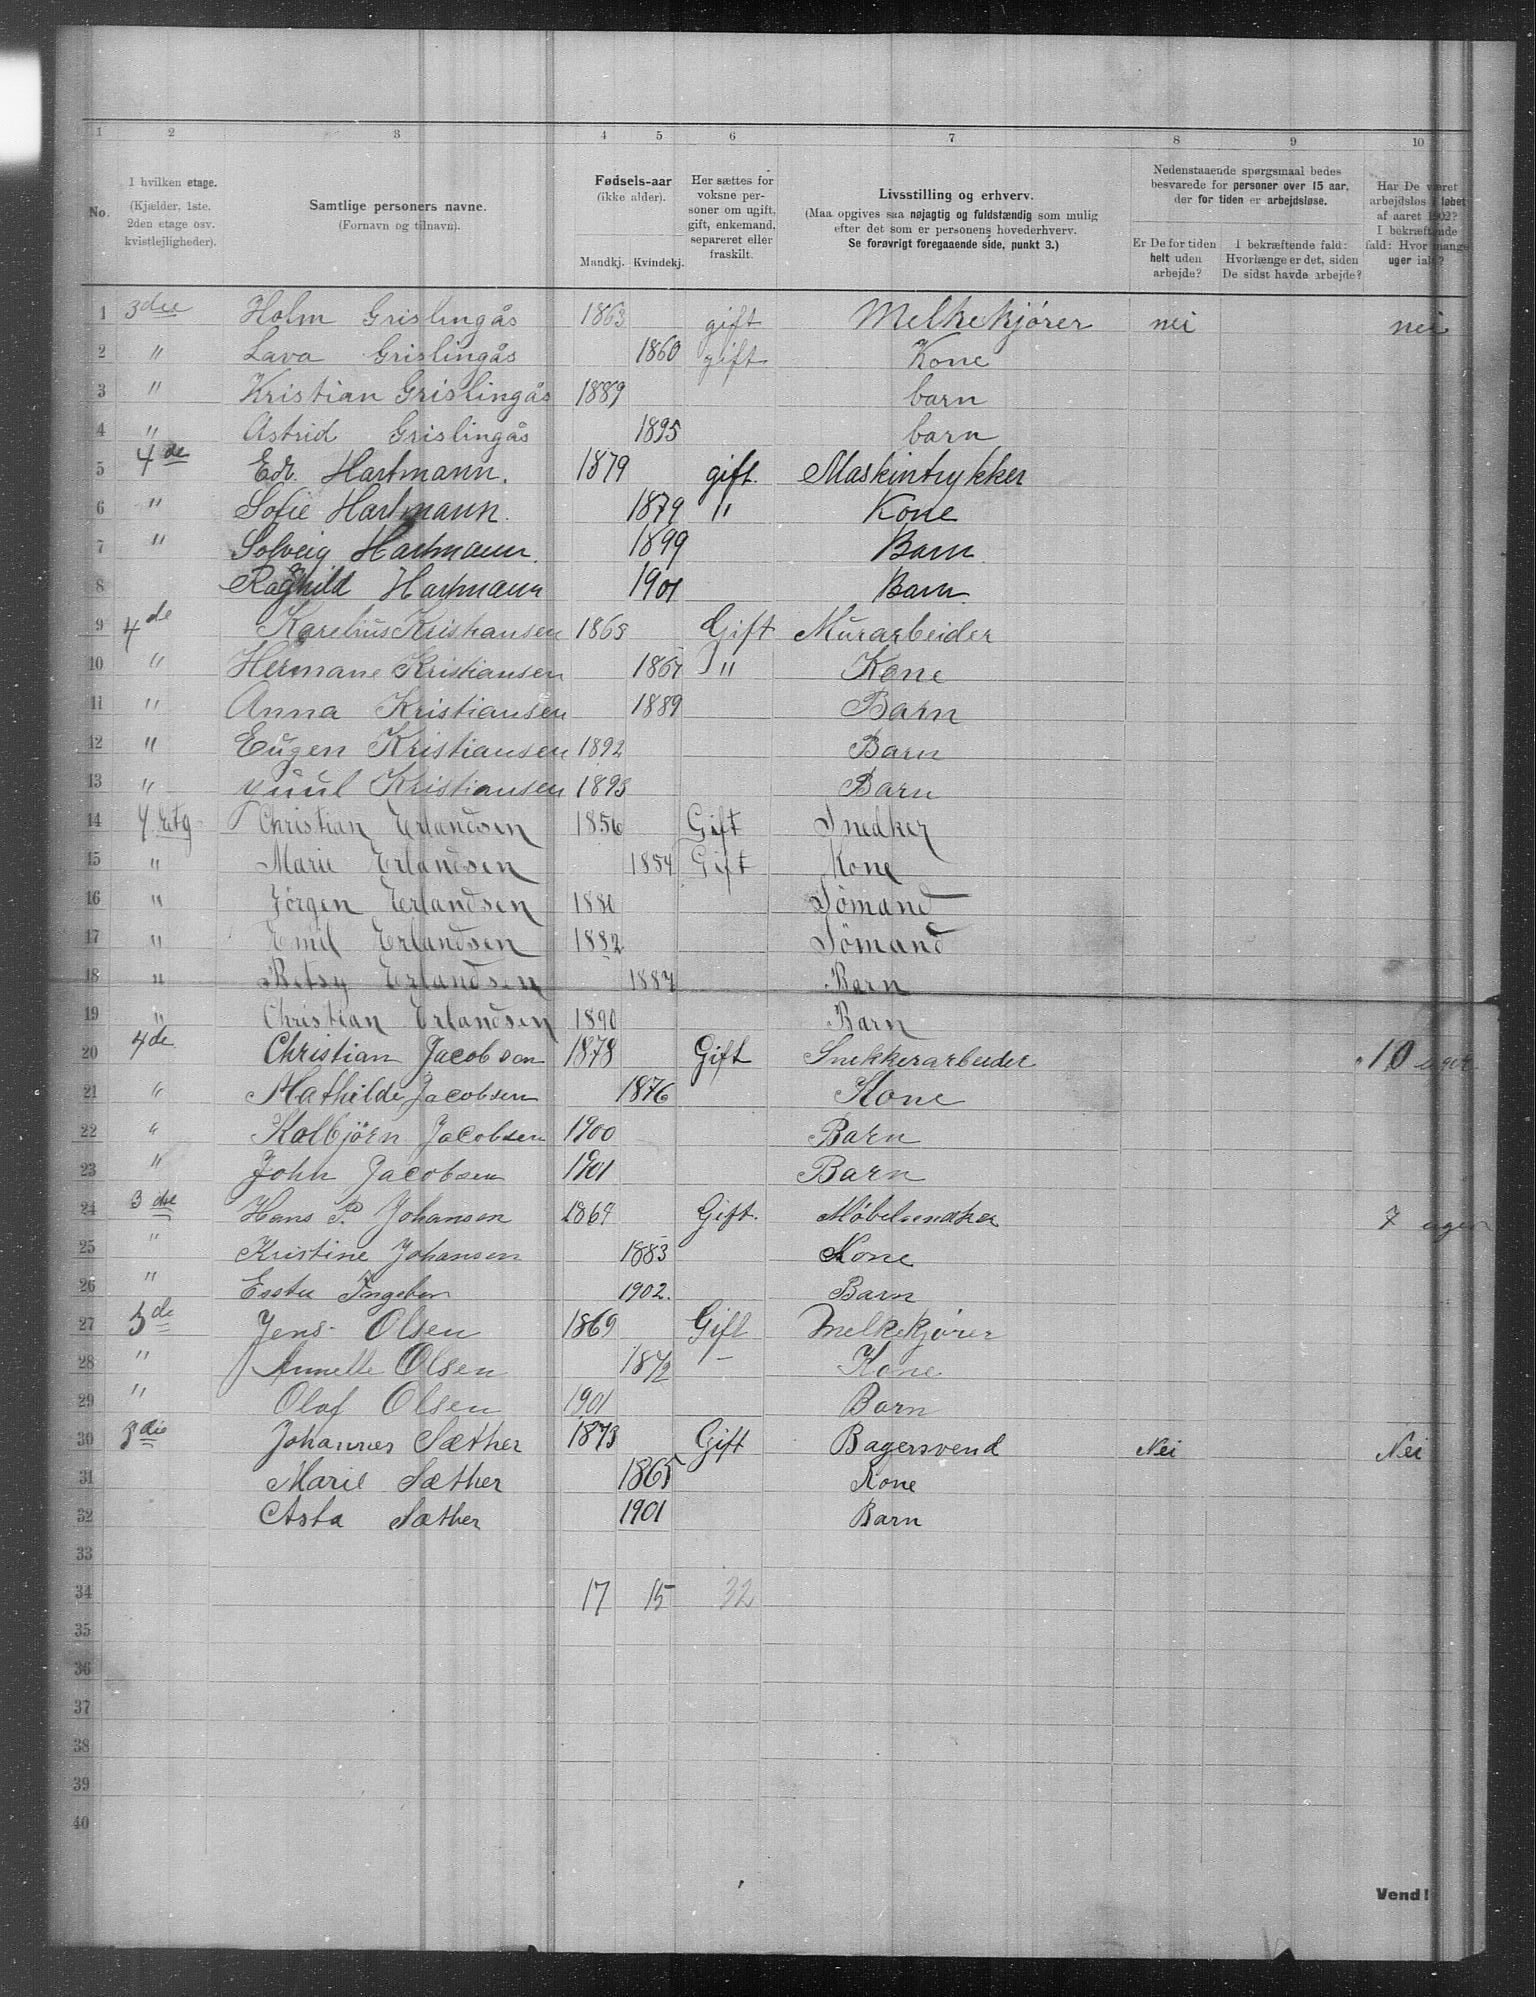 1 2 3 4 5 6 7 8 9 10
No. I hvilken etage. (Kjælder, 1ste, 2den etage osv. kvistlejligheder). Samtlige personers navne. (Fornavn og tilnavn). Fødsels-aar (ikke alder). Mandkj. Kvindekj. Her sættes for voksne personer om ugift, gift, enkemand, separeret eller fraskilt. Livsstilling og erhverv. (Maa opgives saa nøjagtig og fuldstændig som mulig efter det som er personens hovederhverv. Se forøvrigt foregaaende side, punkt 3.) Nedenstaaende spørgsmaal bedes besvarede for personer over 15 aar, der for tiden er arbejdsløse. Er De for tiden helt uden arbejde? I bekræftende fald: Hvorlænge er det, siden De sidst havde arbejde? Har De været arbejdsløs i løbet af aaret 1902? I bekræftende fald: Hvor mange uger ialt?
1 3die Holm Grislingås 1863 gift Melkekjører nei nei
2 " Lava Grislingås 1860 gift Kone
3 " Kristian Grislingås 1889 barn
4 " Astrid Grislingås 1895 barn
5 4de Edv. Hartmann. 1879 gift. Maskintrykker
6 " Sofie Hartmann. 1879 " Kone
7 " Solveig Hartmann. 1899 Barn
8 Raghild Hartmann 1901 Barn.
9 4de Karelius Kristiansen 1865 Gift Murarbeider
10 " Hermane Kristiansen 1867 " Kone
11 " Anna Kristiansen 1889 Barn
12 " Eugen Kristiansen 1892 Barn
13 " Juul Kristiansen 1893 Barn
14 4 Etg Christian Erlandsen 1856 Gift Snedker
15 " Marie Erlandsen 1854 Gift Kone
16 " Jørgen Erlandsen 1880 Sømand
17 " Emil Erlandsen 1882 Sømand
18 " Betsy Erlandsen 1887 Barn
19 " Christian Erlandsen 1890 Barn
20 4de Christian Jacobsen 1878 Gift Snekkerarbeider 10 uger
21 " Mathilde Jacobsen 1876 Kone
22 " Kolbjörn Jacobsen 1900 Barn
23 " John Jacobsen 1901 Barn
24 3die Hans P. Johansen 1869 Gift. Møbelsnedker 7 uger
25 " Kristine Johansen 1883 Kone
26 " Ester Ingeborg 1902. Barn
27 3de Jens Olsen 1869 Gift Melkekjører
28 " Annette Olsen 1872 – Kone
29 " Olaf Olsen 1901 Barn
30 3die Johannes Sæther 1873 Gift Bagersvend Nei Nei
31 Marie Sæther 1865 Kone
32 Asta Sæther 1901 Barn
33
34 17 15 32
35
36
37
38
39
40
Vend!